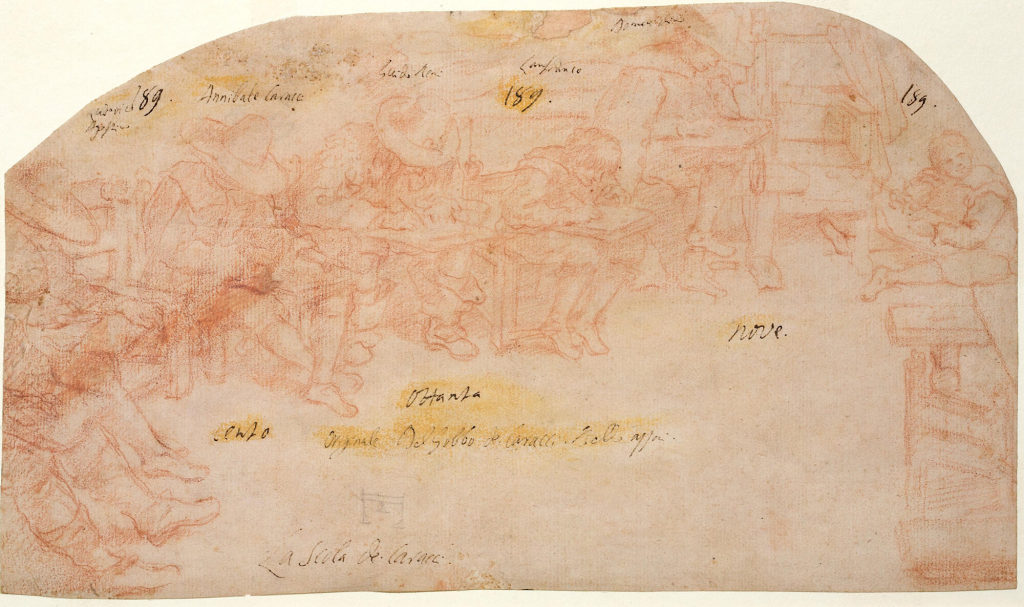 Domenichino
Guido Reni
Lanfranco
189.
Annibale Caracc
189.
189.
nove.
ottanta
cento
originale Del Gobbo de Caracci
La Scola de Caracci.